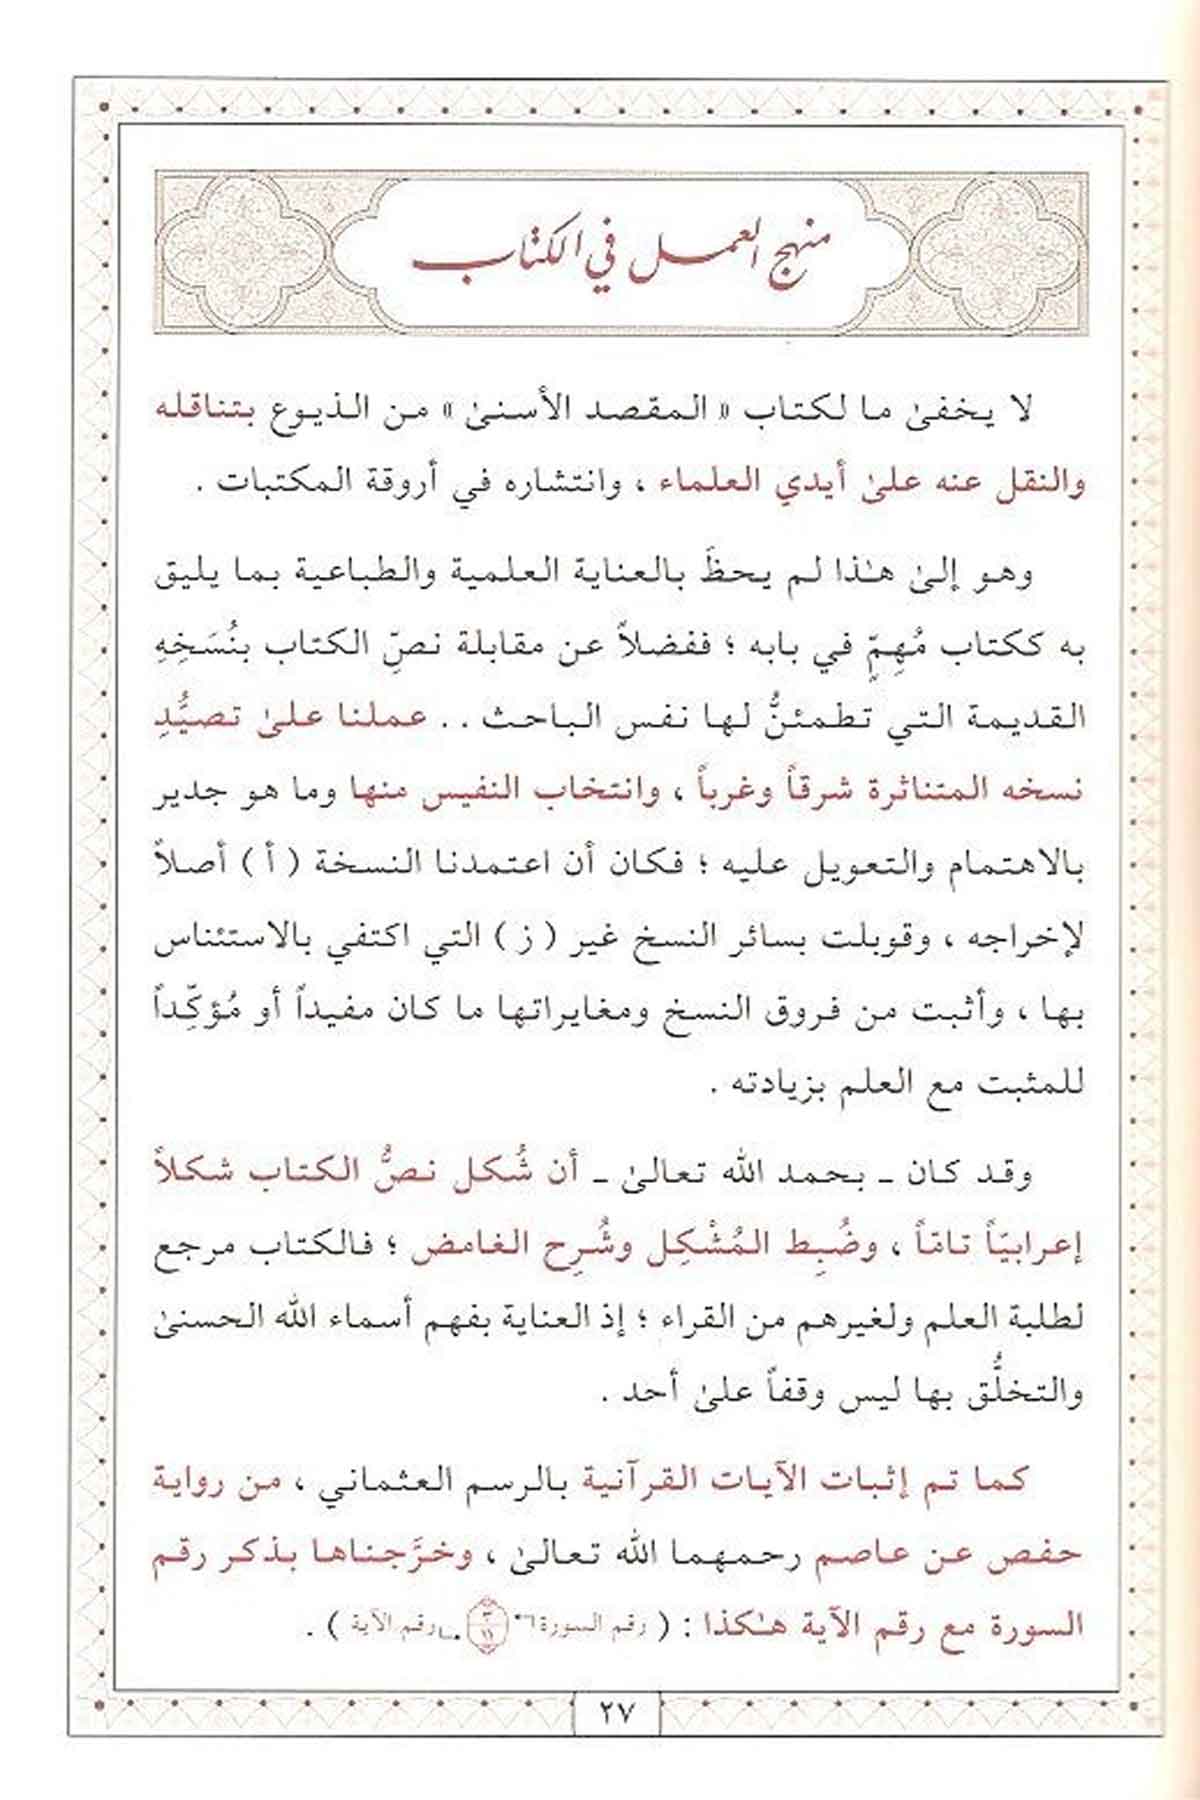 منهج العمل في الكتاب
لا يخفىٰ ما لكتاب « المقصد الأسنىٰ » من الذيوع بتناقله
والنقل عنه علىٰ أيدي العلماء ، وانتشاره في أروقة المكتبات .
وهو إلىٰ هـٰذا لم يحظَ بالعناية العلمية والطباعية بما يليق
به ككتاب مُهِمٍّ في بابه ؛ ففضلاً عن مقابلة نصِّ الكتاب بنُسَخِهِ
القديمة التي تطمئنُّ لها نفس الباحث . . عملنا علىٰ تصيُّدِ
نسخه المتناثرة شرقاً وغرباً ، وانتخاب النفيس منها وما هو جدير
بالاهتمام والتعويل عليه ؛ فكان أن اعتمدنا النسخة ( أ ) أصلاً
لإخراجه ، وقوبلت بسائر النسخ غير ( ز ) التي اكتفي بالاستئناس
بها ، وأثبت من فروق النسخ ومغايراتها ما كان مفيداً أو مُؤكِّداً
للمثبت مع العلم بزيادته .
وقد كان ـ بحمد الله تعالىٰ ـ أن شُكل نصُّ الكتاب شكلاً
إعرابيّاً تامّاً ، وضُبِط المُشْكِل وشُرِح الغامض ؛ فالكتاب مرجع
لطلبة العلم ولغيرهم من القراء ؛ إذ العناية بفهم أسماء الله الحسنىٰ
والتخلُّق بها ليس وقفاً علىٰ أحد .
كما تم إثبات الآيات القرآنية بالرسم العثماني ، من رواية
حفص عن عاصم رحمهما الله تعالىٰ ، وخرَّجناها بذكر رقم
السورة مع رقم الآية هـٰكذا : ( رقم السورة ٣ ١١ رقم الآية ) .
٢٧